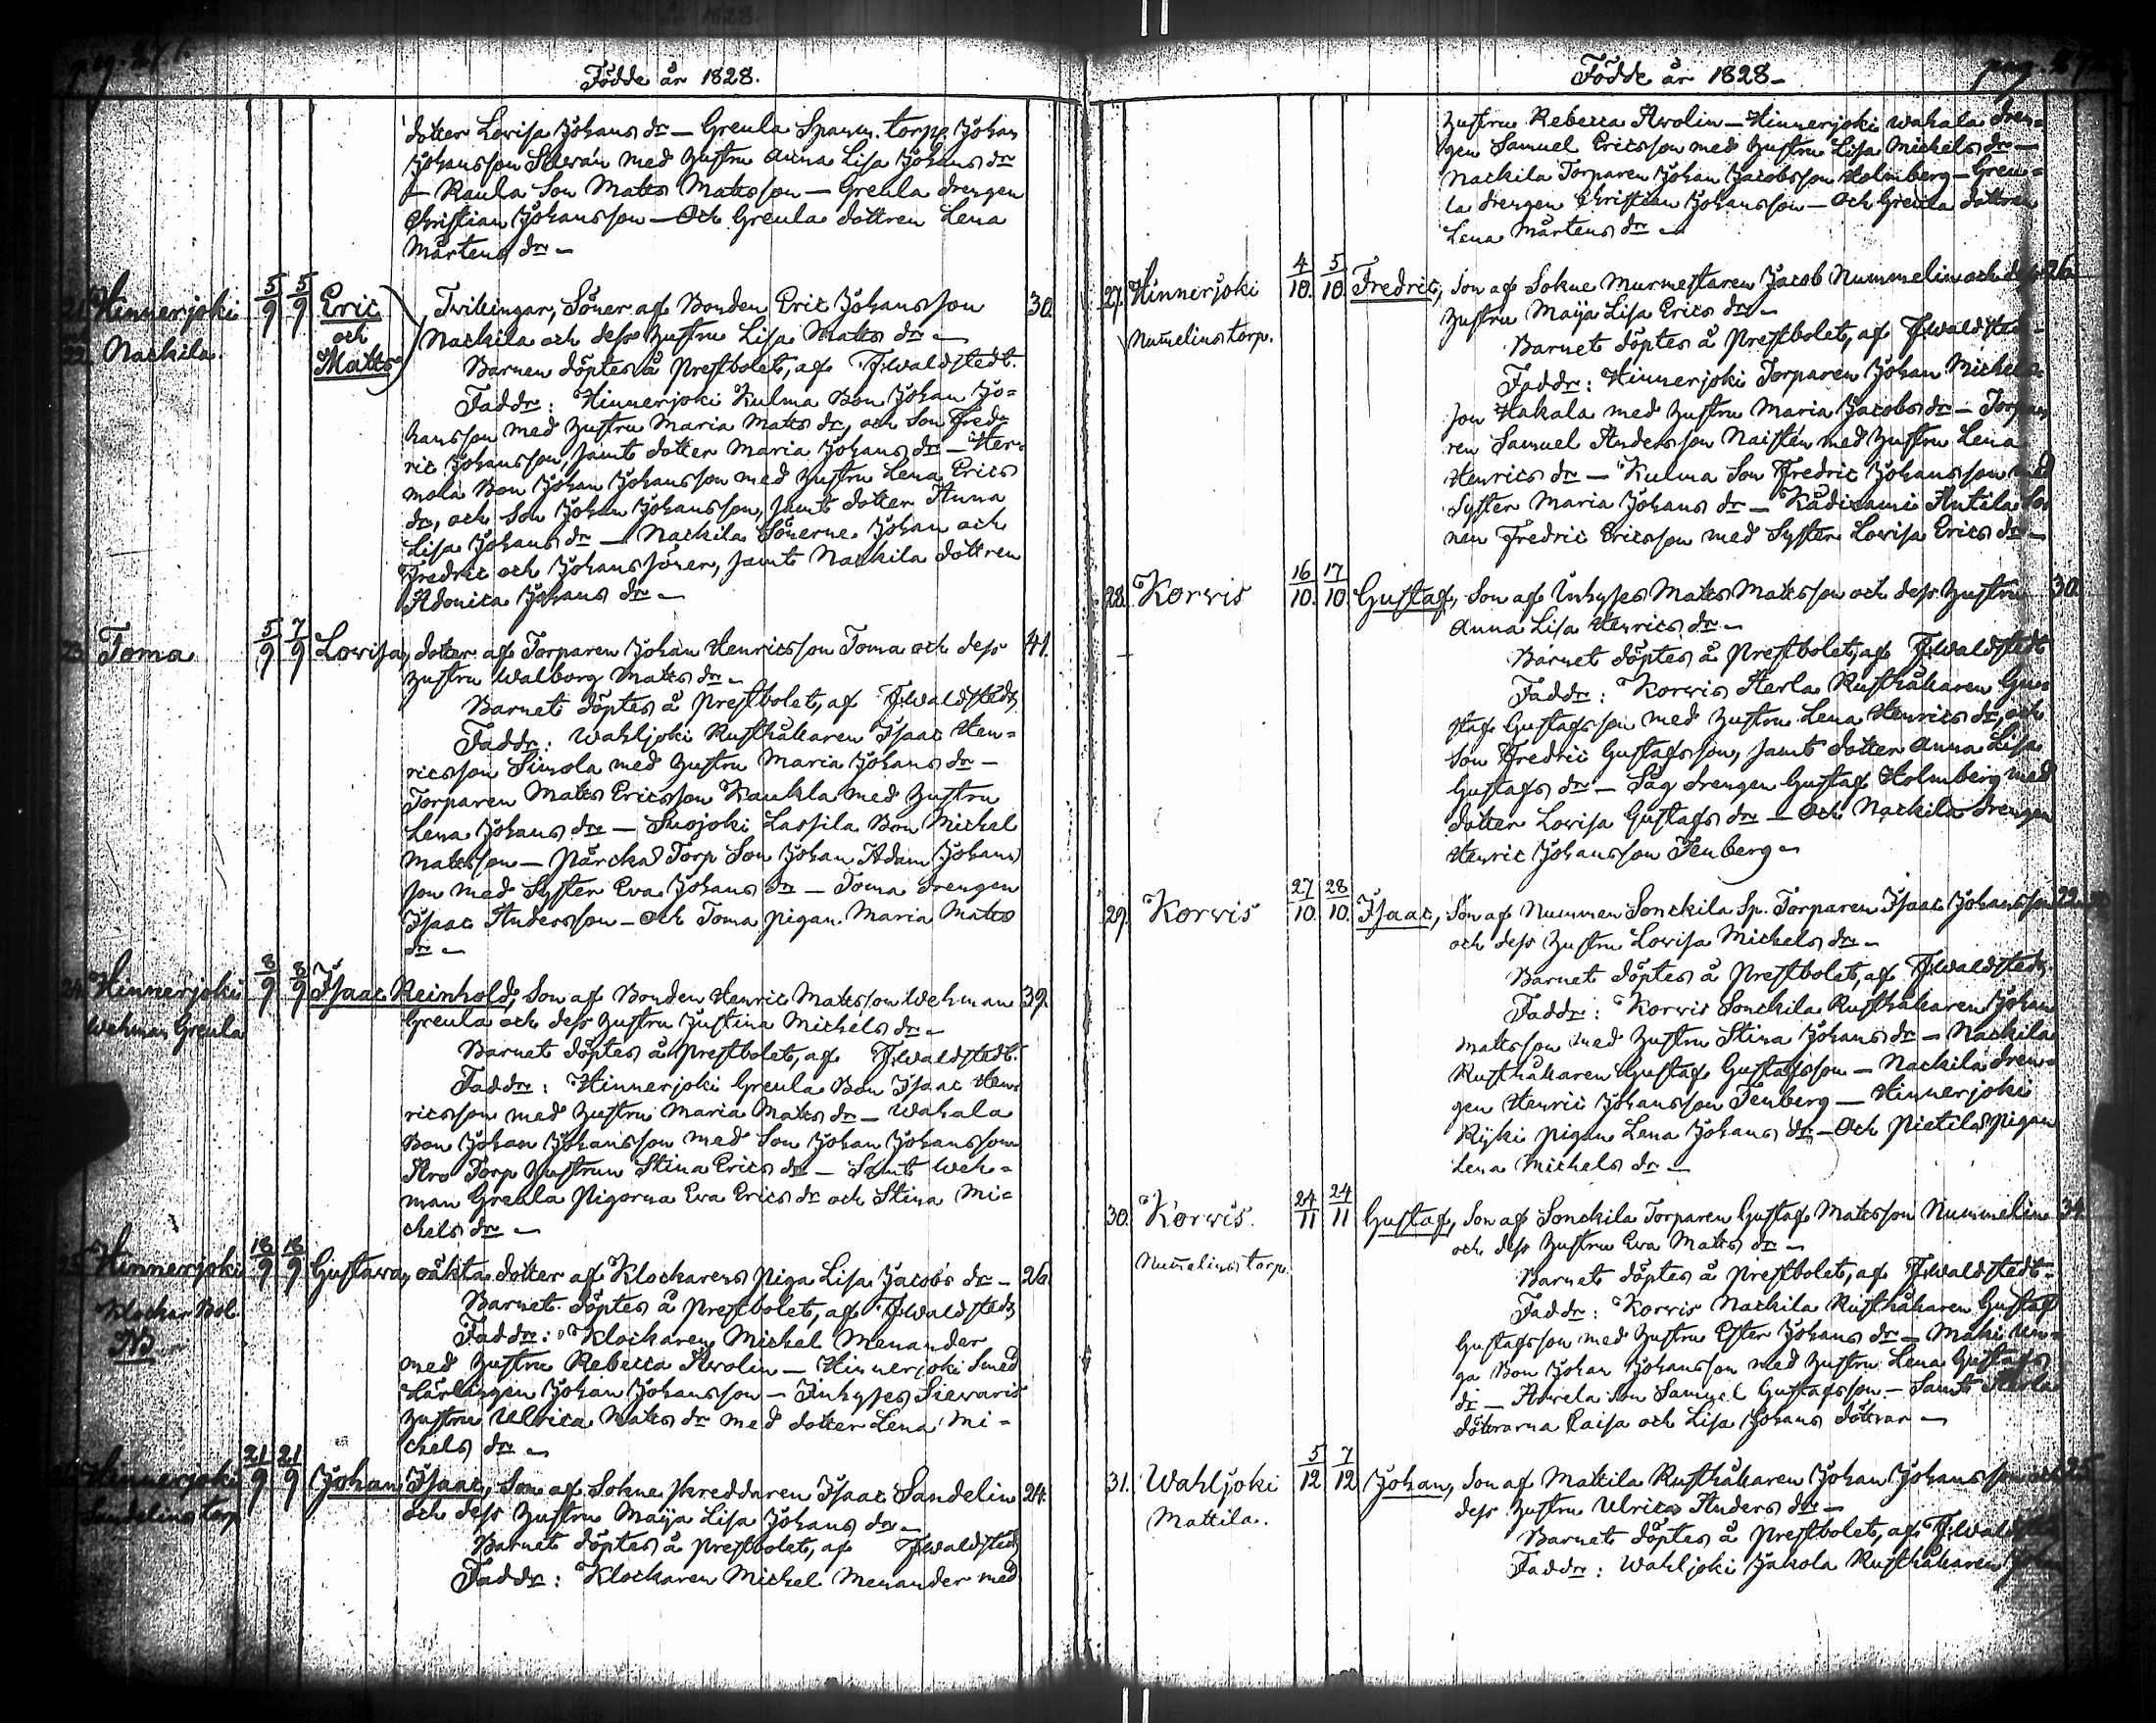 Födde år 1828.
dotter Lovisa Johans dr – Greula Spanm. torp. Johan
Johansson Stewán med hustru Anna Lisa Johans dr
– Raula Son Matts Mattsson – Greula drengen
Christian Johansson – Och Greula dottren Lena
Mårtens dr –
21 Hinnerjoki 5/9 5/9 Eric Twillingar, Söner af Bonden Eric Johansson 30.
22 Nackila och Nackila och dess hustru Lisa Matts dr –
Matts Barnen döptes å Prestbolet, af F. Waldstedt.
Faddr: Hinnerjoki Kulma Bon Johan Jo=
hansson med hustru Maria Matts dr, och Son Fred=
ric Johansson, samt dotter Maria Johans dr – Her=
mola Bon Johan Johansson med hustru Lena Erics
dr, och Son Johan Johansson, samt dotter Anna
Lisa Johans dr – Nackila Sönerne Johan och
Fredric och Johanssöner, samt Nackila dottren
Adonica Johans dr –
23 Toma 5/9 7/9 Lovisa, dotter af Torparen Johan Henricsson Toma och dess 41.
hustru Walborg Matts dr –
Barnet döptes å Prestbolet, af F. Waldstedt
Faddr: Wahljoki Rusthållaren Isaac Hen=
ricsson Simola med hustru Maria Johans dr –
Torparen Matts Ericsson Kaukla med hustru
Lena Johans dr – Suojoki Lassila Bon Michel
Mattsson – Pärckä Torp Son Johan Adam Johans
son med Syster Eva Johans dr – Toma drengen
Isaac Andersson – Och Toma pigan Maria Matts
dr –
24 Hinnerjoki 8/9 8/9 Isaac Reinhold, Son af Bonden Henric Mattsson Wehman 39.
Wehman Greula Greula och dess hustru Justina Michels dr –
Barnet döptes å Prestbolet, af F. Waldstedt.
Faddr: Hinnerjoki Greula Bon Isaac Hen=
ricsson med hustru Maria Matts dr – Wahala
Bon Johan Johansson med Son Johan Johansson
Aro Torp hustrun Stina Erics dr – Samt Weh=
man Greula Pigorna Eva Erics dr och Stina Mi=
chels dr –
25 Hinnerjoki 18/9 18/9 Gustava, oäkta dotter af Klockarens Piga Lisa Jacobs dr – 26
Klockar Bol. Barnet döptes å Prestbolet, af F. Waldstedt
Faddr: Klockaren Michel Menander
med hustru Rebecca Awolin – Hinnerjoki Smed
Lärlingen Johan Johansson – Inhyses Siewaris
hustru Ulrica Matts dr med dotter Lena Mi=
chels dr –
Hinnerjoki 21/9 21/9 Johan Isaac, Son af Sokne skreddaren Isaac Sandelin 24.
Sandelins torp och dess hustru Maija Lisa Johans dr –
Barnet döptes å Prestbolet, af F. Waldstedt
Faddr: Klockaren Michel Menander med
Födde år 1828 –
hustru Rebecca Awolin – Hinnerjoki Wahala dren=
gen Samuel Ericsson med hustru Lisa Michels dr –
Nackila Torparen Johan Jacobsson Holmberg – Greu=
la drengen Christian Johansson – Och Greula dottren
Lena Mårtens dr –
27. Hinnerjoki 4/10. 5/10. Fredric, Son af Sokne Murmestaren Jacob Nummelin och dess 26.
Num̄elins torp. hustru Maija Lisa Erics dr –
Barnet döptes å Prestbolet, af F. Waldstedt
Faddr: Hinnerjoki Torparen Johan Michels
son Hakala med hustru Maria Jacobs dr – Torpa
ren Samuel Andersson Naistén med hustru Lena
Henrics dr – Kulma Son Fredric Johansson med
Syster Maria Johans dr – Kådisami Antila So
nen Fredric Ericsson med Syster Lovisa Erics dr –
28. Korvis 16/10. 17/10 Gustaf, Son af Inhyses Matts Mattsson och dess hustru 30.
Anna Lisa Henrics dr –
Barnet döptes å Prestbolet, af F. Waldstedt
Faddr: Korvis Aerla Rusthållaren Gu=
staf Gustafsson med hustru Lena Henrics dr, och
Son Fredric Gustafsson, samt dotter Anna Lisa
Gustafs dr – Såg drengen Gustaf Holmberg med
dotter Lovisa Gustafs dr – Och Nackila drengen
Henric Johansson Tenberg –
29. Korvis 27/10. 28/10. Isaac, Son af Nummen Sonckila Sp. Torparen Isaac Johansson 22
och dess hustru Lovisa Michels dr –
Barnet döptes å Prestbolet, af F. Waldstedt.
Faddr: Korvis Sonckila Rusthållaren Johan
Mattsson med hustru Stina Johans dr – Nackila
Rusthållaren Gustaf Gustafsson – Nackila dren=
gen Henric Johansson Tenberg – Hinnerjoki
Ryki pigan Lena Johans dr – Och Pietilä Pigan
Lena Michels dr –
30. Korvis. 24/11 24/11 Gustaf, Son af Sonckila Torparen Gustaf Mattsson Nummelin 34.
Num̄elins torp. och dess hustru Eva Matts dr –
Barnet döptes å Prestbolet, af F. Waldstedt
Faddr: Korvis Nackila Rusthållaren Gustaf
Gustafsson med hustru Ester Johans dr – Mäki Un=
ga Bon Johan Johansson med hustru Lena Gustafs
dr – Son Samuel Gustafsson – Samt
dötrarna Caisa och Lisa Johans döttrar –
31. Wahljoki 5/12 7/12 Johan, Son af Mattila Rusthållaren Johan Johansson och 25
Mattila. dess hustru Ulrica Anders dr –
Barnet döptes å Prestbolet, af F. Waldstedt
Faddr: Wahljoki Jakola Rusthållaren